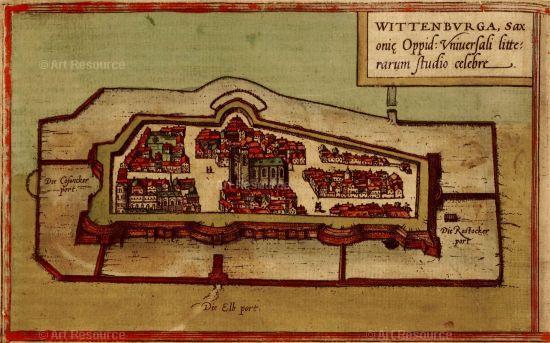 WITTENBVRGA, Sax
onię Oppid: Vniuersali litte:
rarum studio celebre
© Art Resource
© Art Resource
Die Coswicker
port
Die Rostocker
port
Die Elb port.
© Art Resource
© Art Resource